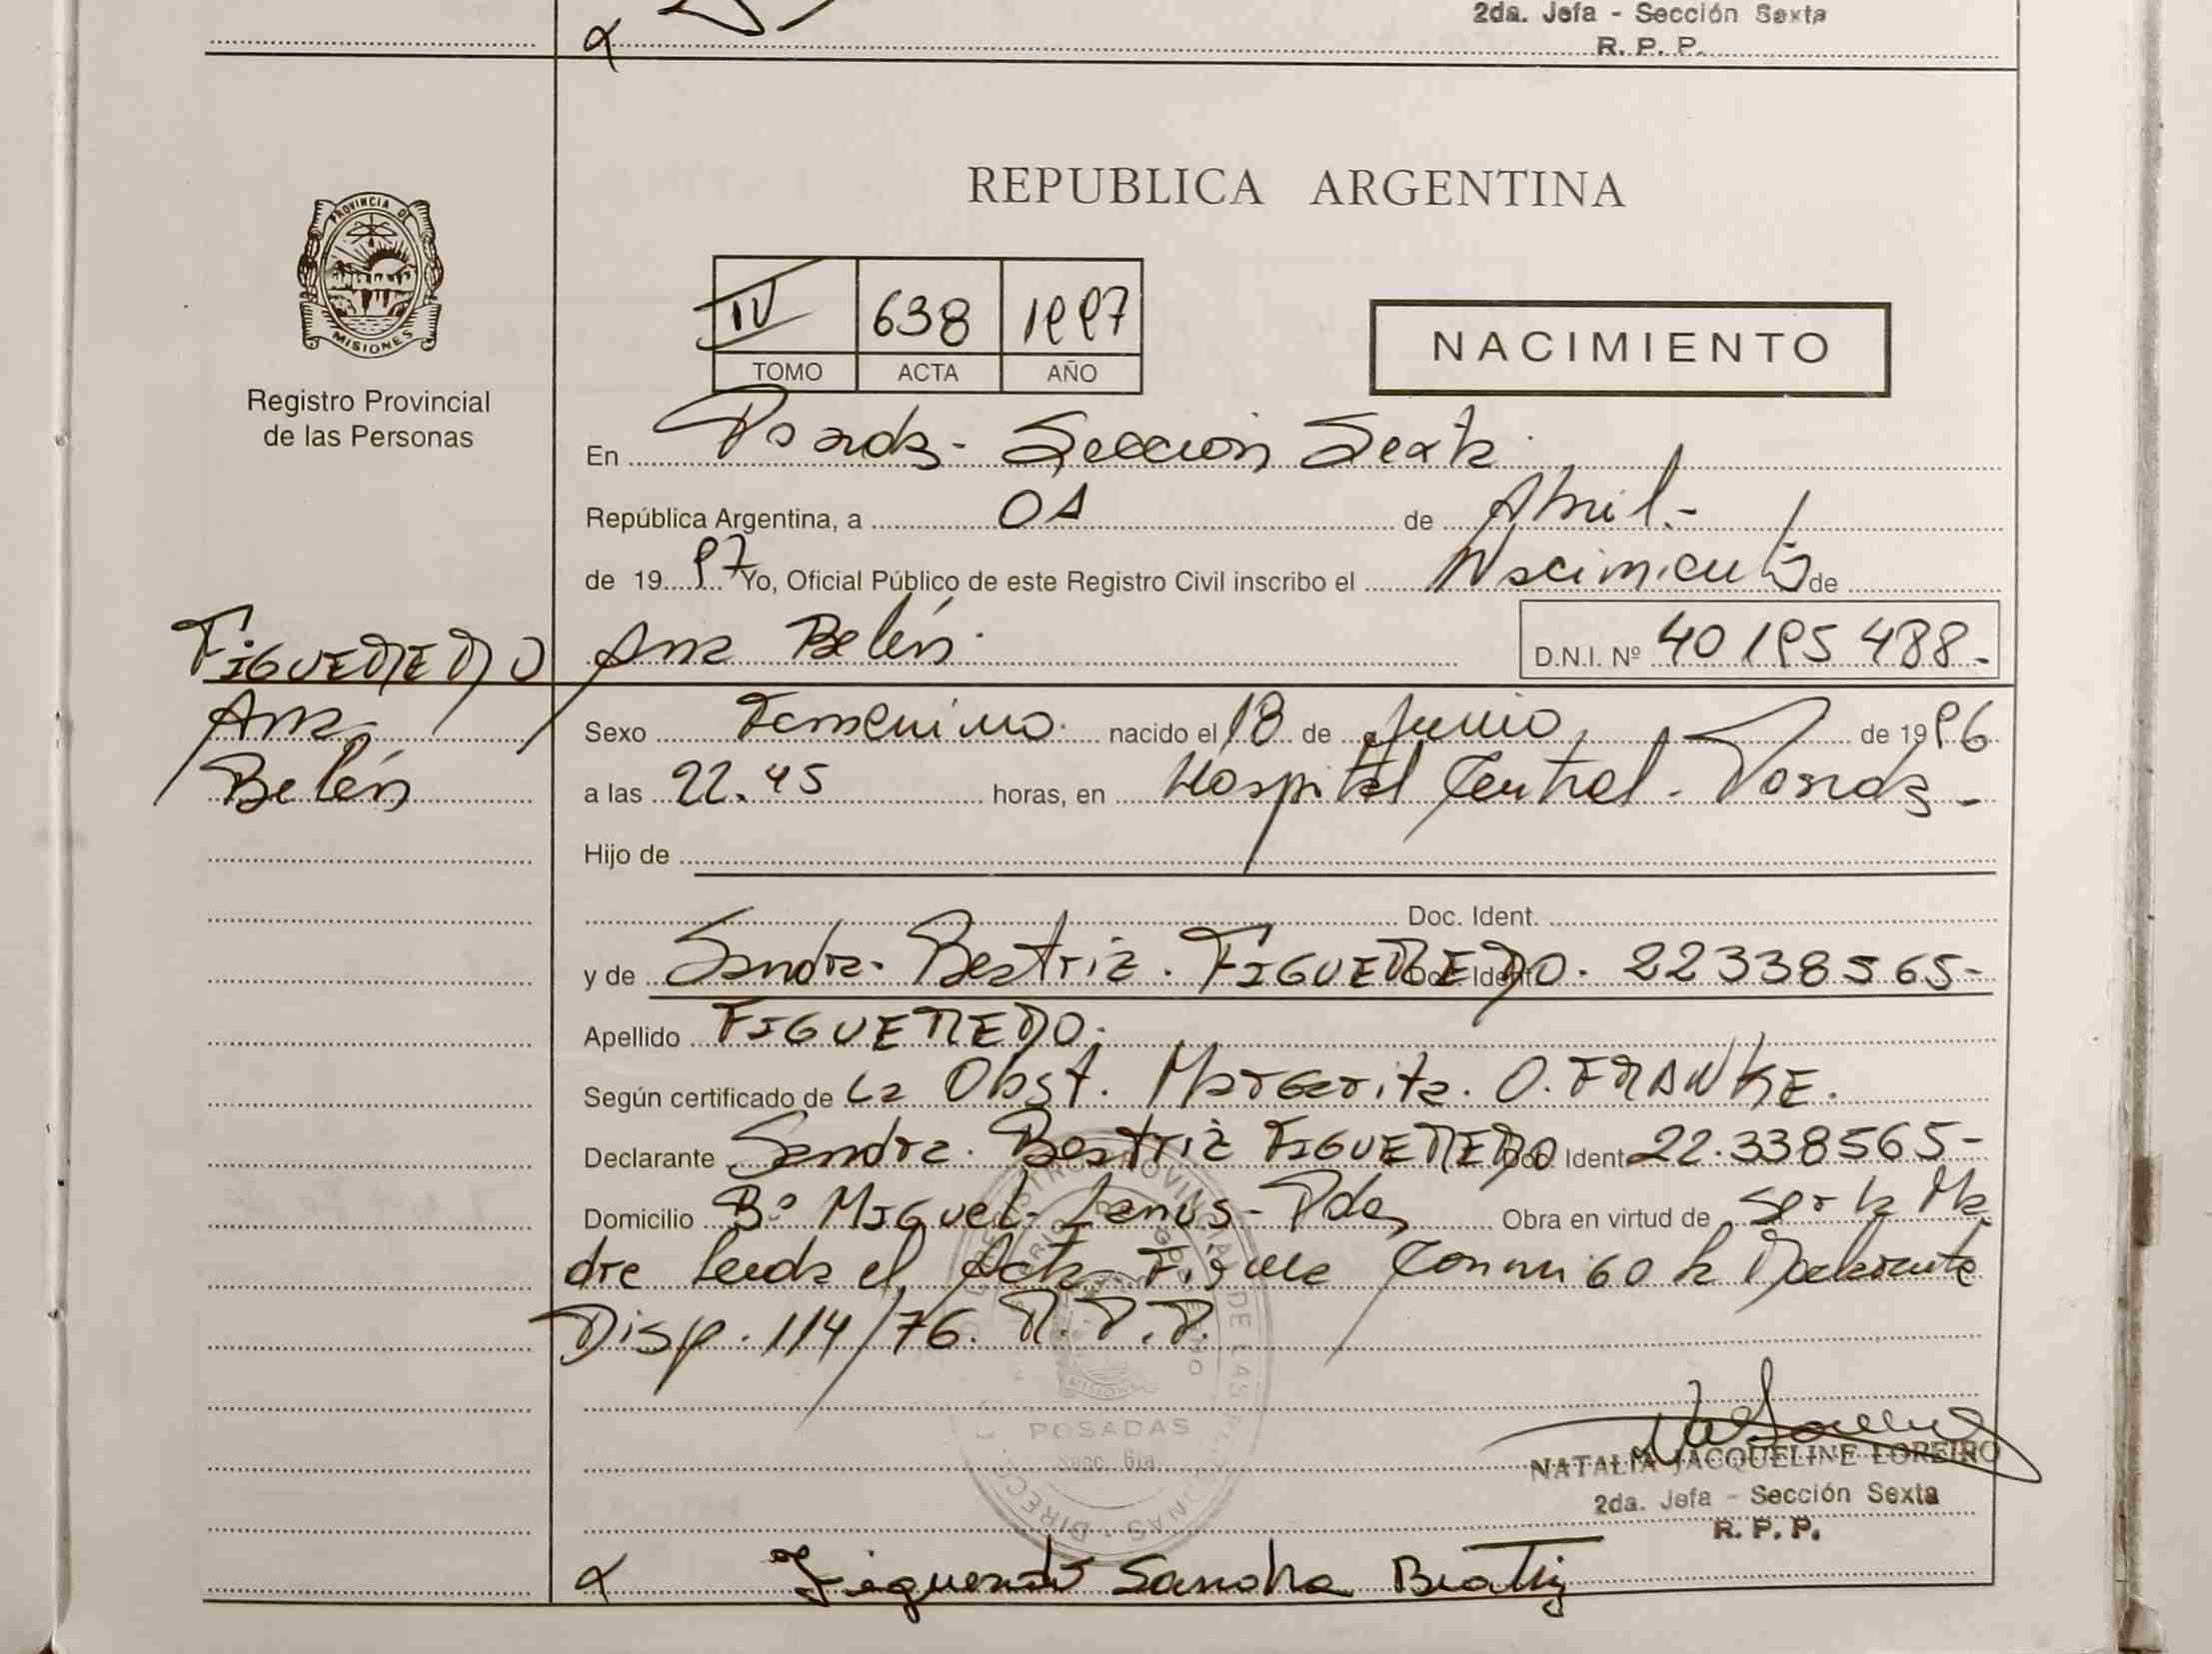 2da. Jefa - Sección Sexta
R. P. P.
PROVINCIA DE
MISIONES
Registro Provincial
de las Personas
REPUBLICA ARGENTINA
IV 638 1997
TOMO ACTA AÑO
NACIMIENTO
En Posadas - Sección Sexta.
República Argentina, a 01 de Abril.-
de 1997 Yo, Oficial Público de este Registro Civil inscribo el Nacimiento de
FIGUEREDO Ana Belén. D.N.I. Nº 40195488-
Ana
Belén
Sexo Femenino. nacido el 18 de Junio de 1996
a las 22.45 horas, en Hospital Central - Posadas -
Hijo de
Doc. Ident.
y de Sandra Beatriz. FIGUEREDO. Doc. Ident. 22338565-
Apellido FIGUEREDO.
Según certificado de La Obst. Margarita. O. FRANKE.
Declarante Sandra. Beatriz FIGUEREDO Doc. Ident. 22.338565-
Domicilio Bº Miguel Lanus - Pdas Obra en virtud de ser la Ma
dre leida el Acta Firma Conmigo la Declarante
Disp. 114/76. R.P.P.
POSADAS
Secc. 6ta
NATALIA JACQUELINE LOREIRO
2da. Jefa - Sección Sexta
R. P. P.
Figueredo Sandra Beatriz